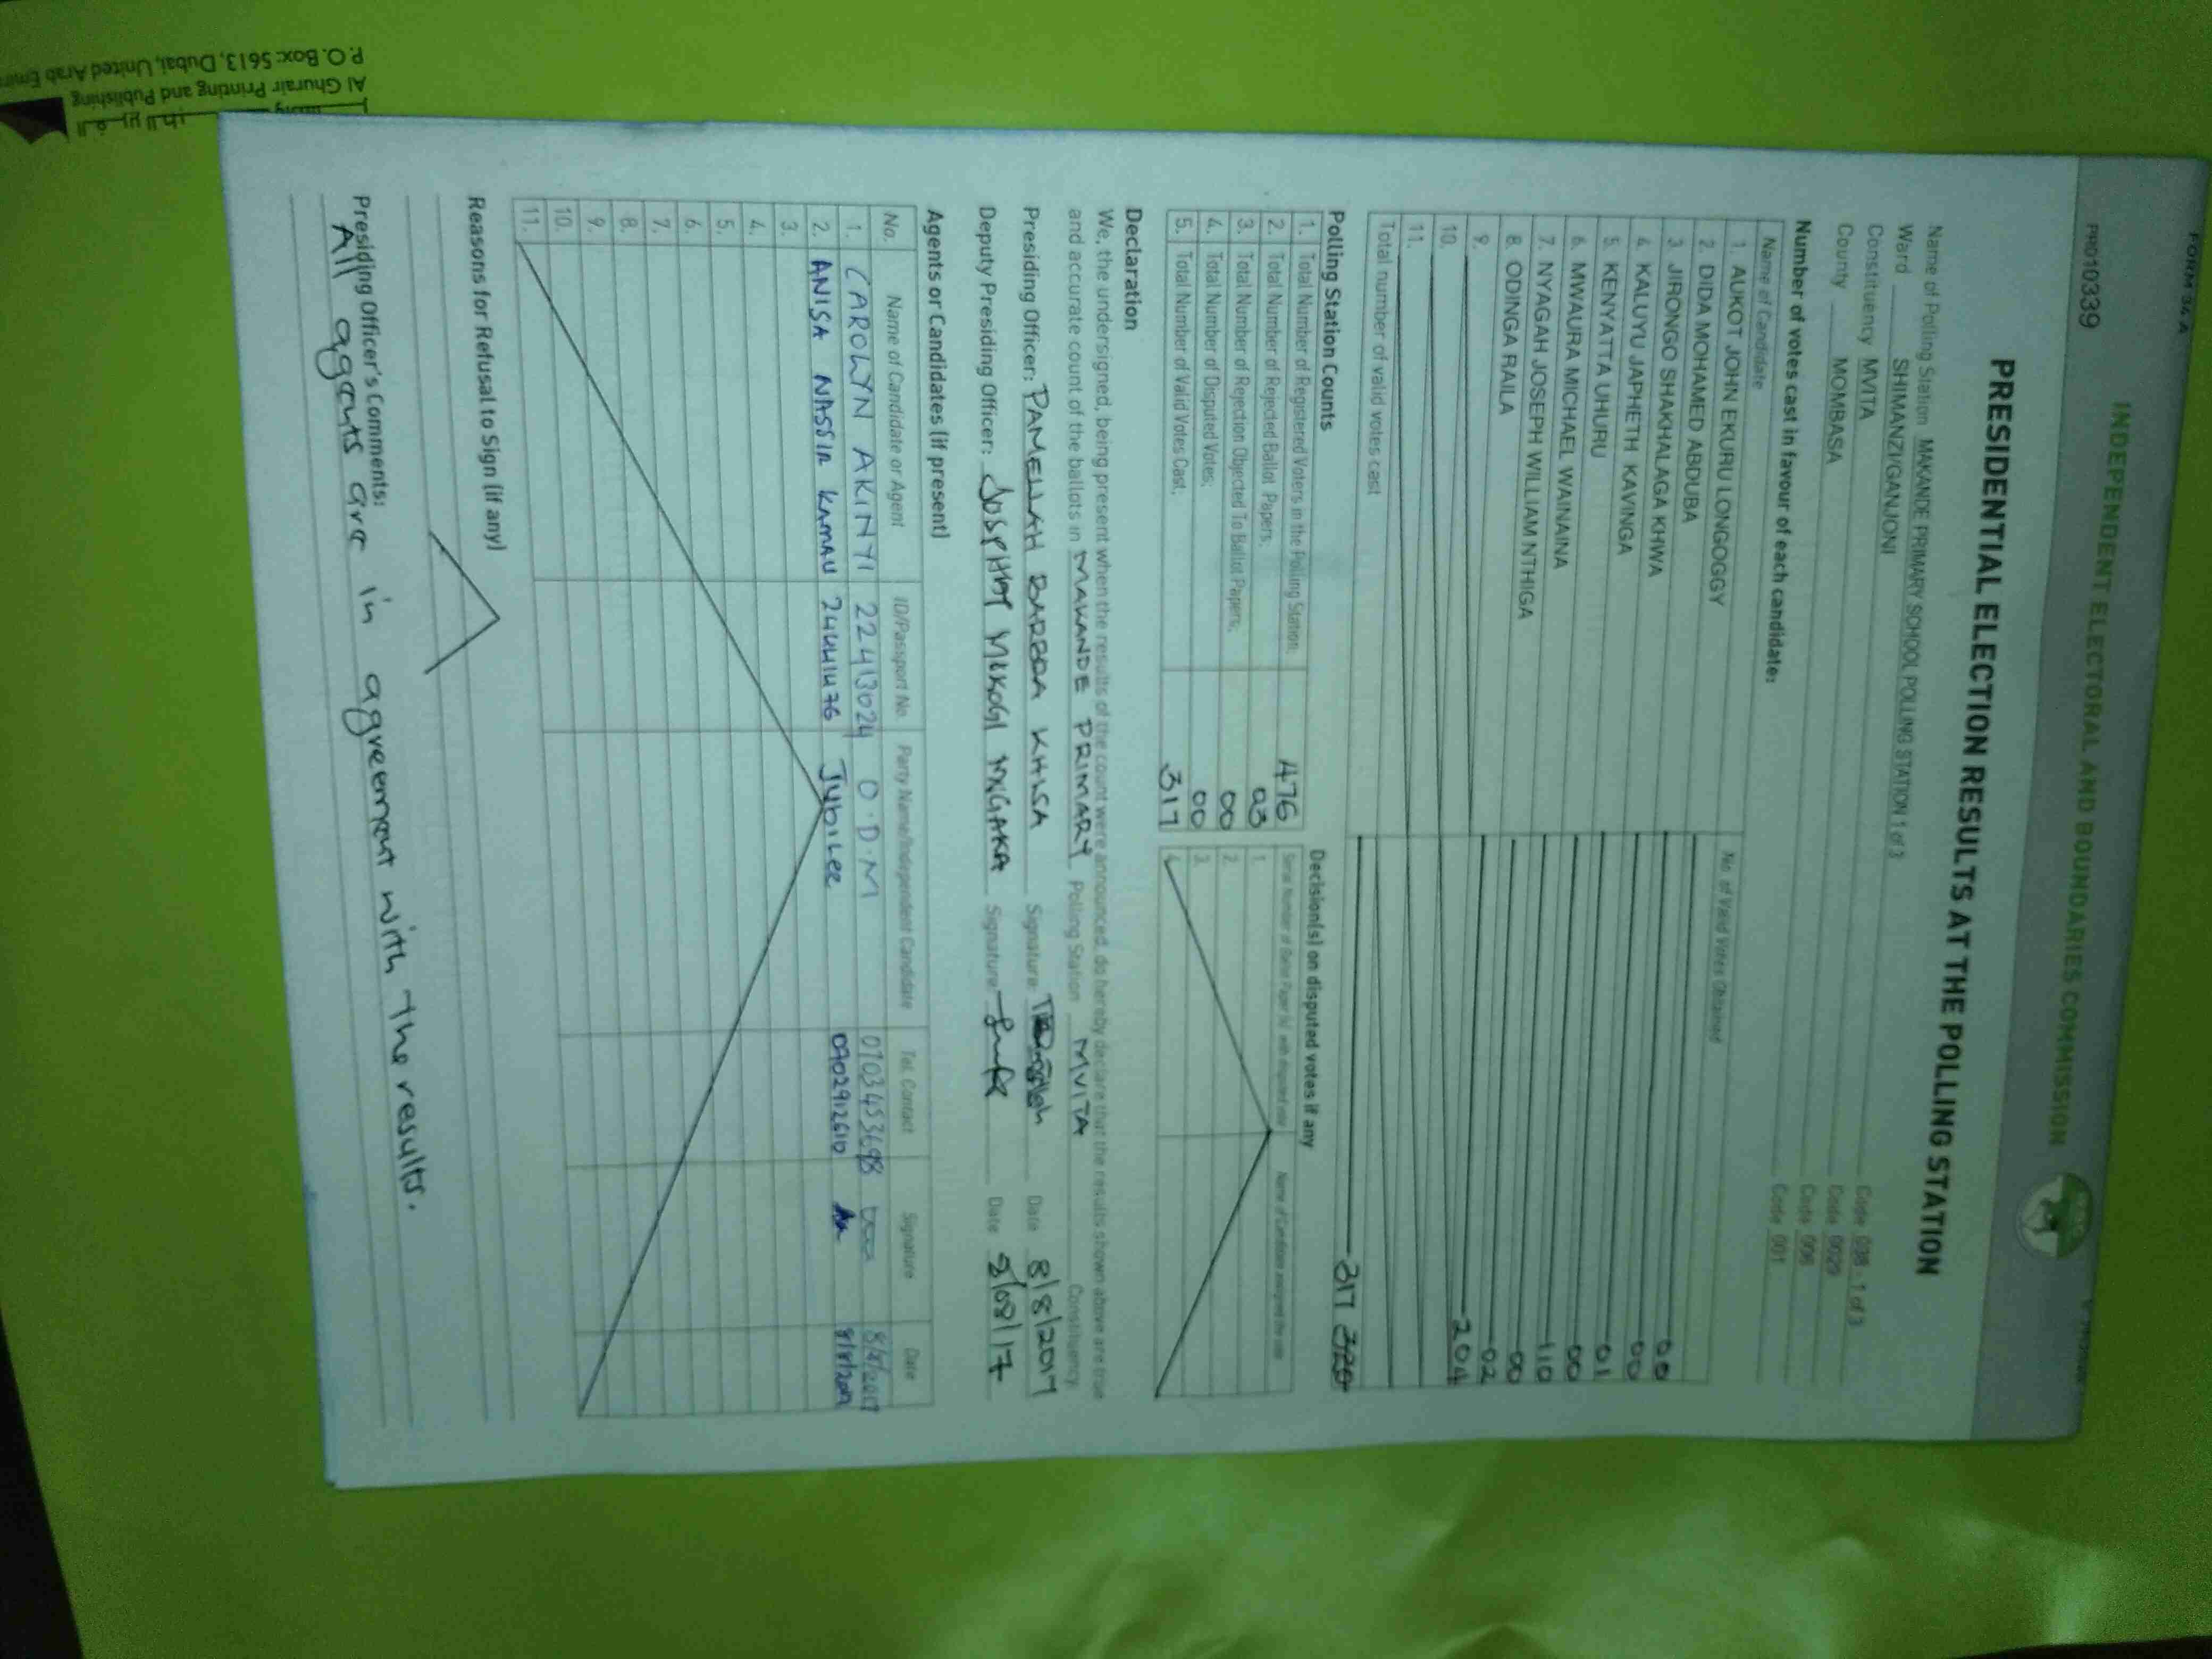 FORM 34 A
INDEPENDENT ELECTORAL AND BOUNDARIES COMMISSION
PR010339
PRESIDENTIAL ELECTION RESULTS AT THE POLLING STATION
Name of Polling Station MAKANDE PRIMARY SCHOOL POLLING STATION 1 of 3 Code 038 - 1 of 3
Ward SHIMANZI/GANJONI Code 0029
Constituency MVITA Code 006
County MOMBASA Code 001
Number of votes cast in favour of each candidate:
Name of Candidate No. of Valid Votes Obtained
1. AUKOT JOHN EKURU LONGOGGY 00
2. DIDA MOHAMED ABDUBA 00
3. JIRONGO SHAKHALAGA KHWA 01
4. KALUYU JAPHETH KAVINGA 00
5. KENYATTA UHURU 110
6. MWAURA MICHAEL WAINAINA 00
7. NYAGAH JOSEPH WILLIAM NTHIGA 02
8. ODINGA RAILA 204
9.
10.
11.
Total number of valid votes cast 317 320
Polling Station Counts
1. Total Number of Registered Voters in the Polling Station: 476
2. Total Number of Rejected Ballot Papers: 03
3. Total Number of Rejection Objected To Ballot Papers: 00
4. Total Number of Disputed Votes: 00
5. Total Number of Valid Votes Cast: 317
Decision(s) on disputed votes if any
1.
2.
3.
4.
Declaration
We, the undersigned, being present when the results of the count were announced, do hereby declare that the results shown above are true
and accurate count of the ballots in MAKANDE PRIMARY Polling Station MVITA Constituency.
Presiding Officer: PAMELLAH BARBDA KHISA Signature: Date 8/8/2017
Deputy Presiding Officer: JOSPHAT MOKOGI Signature: Date 8/08/17
Agents or Candidates (if present)
No. Name of Candidate or Agent ID/Passport No. Party Name/Independent Candidate Tel. Contact Signature Date
1. CAROLYN AKINYI 22413024 O.D.M 0703453698 8/8/2017
2. ANISA NASSIR KAMAU 24441476 JUBILEE 0702912610 8/8/2017
3.
4.
5.
6.
7.
8.
9.
10.
11.
Reasons for Refusal to Sign (if any)
Presiding Officer's Comments:
All agents are in agreement with the results.
Al Ghurair Printing and Publishing
P.O. Box: 5613, Dubai, United Arab